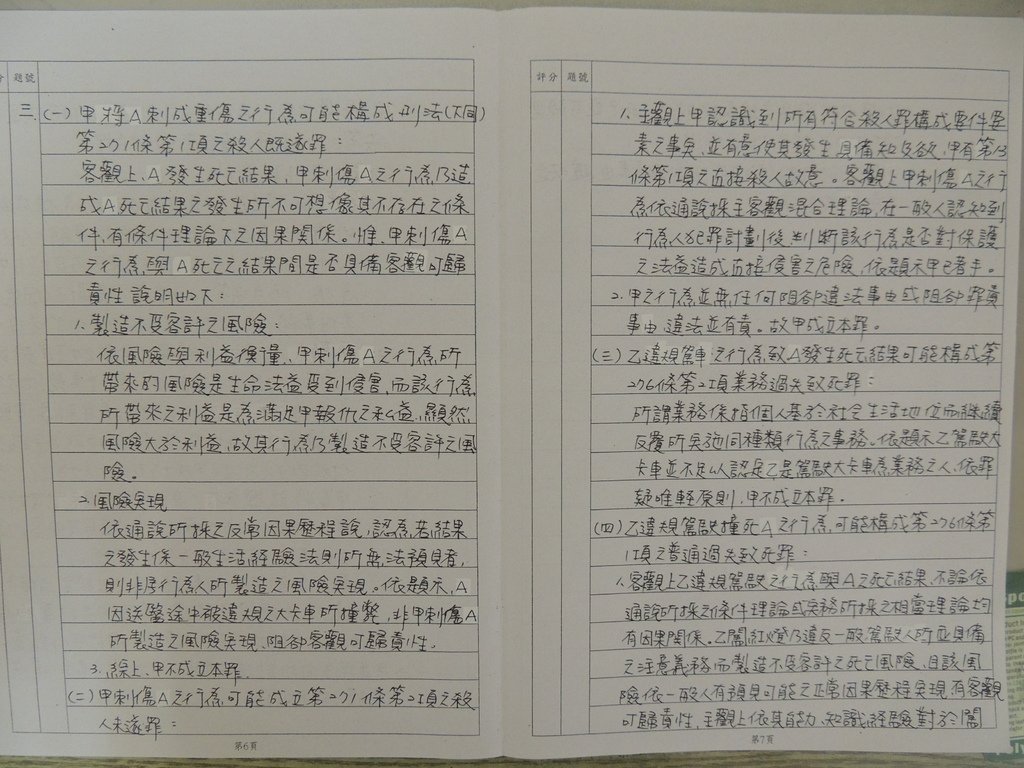 分 題號
三、(一) 甲將A刺成重傷之行為可能構成刑法(下同)
第271條第1項之殺人既遂罪：
客觀上、A發生死亡結果，甲刺傷A之行為乃造
成A死亡結果之發生所不可想像其不存在之條
件，有條件理論下之因果關係。惟，甲刺傷A
之行為，與A死亡之結果間是否具備客觀可歸
責性說明如下：
1.製造不受容許之風險：
依風險與利益衡量、甲刺傷A之行為所
帶來的風險是生命法益受到侵害，而該行為
所帶來之利益是為滿足甲報仇之私益，顯然
風險大於利益，故其行為乃製造不受容許之風
險。
2.風險實現
依通說所採之反常因果歷程說，認為若結果
之發生係一般生活經驗法則所無法預見者，
則非屬行為人所製造之風險實現。依題示，A
因送醫途中被違規之大卡車所撞斃，非甲刺傷A
所製造之風險實現，阻卻客觀可歸責性。
3.綜上，甲不成立本罪。
(二)甲刺傷A之行為可能成立第271條第2項之殺
人未遂罪：
第6頁
評分 題號
1.主觀上甲認識到所有符合殺人罪構成要件要
素之事實，並有意使其發生，具備知及欲，甲有第13
條第1項之直接殺人故意。客觀上甲刺傷A之行
為依通說採主客觀混合理論，在一般人認知到
行為人犯罪計劃後判斷該行為是否對保護
之法益造成直接侵害之危險，依題示甲已著手。
2.甲之行為並無任何阻卻違法事由或阻卻罪責
事由，違法並有責。故甲成立本罪。
(三)乙違規駕車之行為致A發生死亡結果可能構成第
276條第2項業務過失致死罪：
所謂業務係指個人基於社會生活地位而繼續
反覆所實施同種類行為之事務。依題示乙駕駛大
卡車並不足以認定乙是駕駛大卡車為業務之人，依罪
疑唯輕原則，甲不成立本罪。
(四)乙違規駕駛撞死A之行為，可能構成第276條第
1項之普通過失致死罪：
1.客觀上乙違規駕駛之行為與A之死亡結果，不論依
通說所採之條件理論或實務所採之相當理論均
有因果關係。乙闖紅燈乃違反一般駕駛人所應具備
之注意義務而製造不受容許之死亡風險，且該風
險依一般人有預見可能之正常因果歷程實現，有客觀
可歸責性，主觀上依其能力、知識、經驗對於闖
第7頁